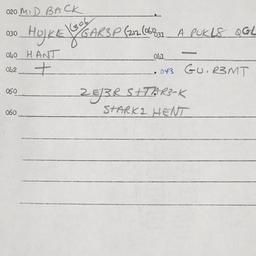 020 MID BACK
030 HUJKE GARSP (212 (060 031 A PUKLS QGL
040 HANT 041 —
042 + . 043 GU.R3MT
050 2EJ3R
060 STARK2 HENT